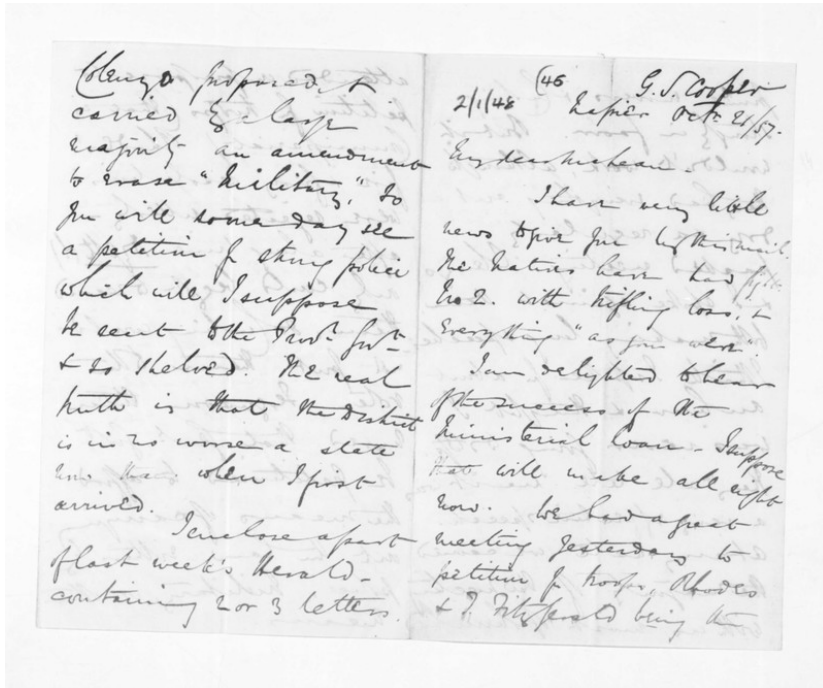 Colenzo proposed, &
carried by a large
majority an amendment
to erase "Military," So
you will some day see
a petition for strong police
which will I suppose
be sent to the Provl. Govt.
& so shelved. The real
truth is that the District
is in no worse a state
now than when I first
arrived.
I enclose a part
of last week's Herald -
containing 2 or 3 letters.
(46
G. S. Cooper
2/1/48
Napier Octr. 21/57.
My dear McLean.
I have very little
news to give you by this mail.
The Natives have had fight
No 2. with trifling loss, &
Everything "as you were".
I am delighted to hear
of the success of the
Ministerial loan - I suppose
that will make all right
now. We had a great
meeting yesterday to
petition for troops, Rhodes
& Fitzgerald being the